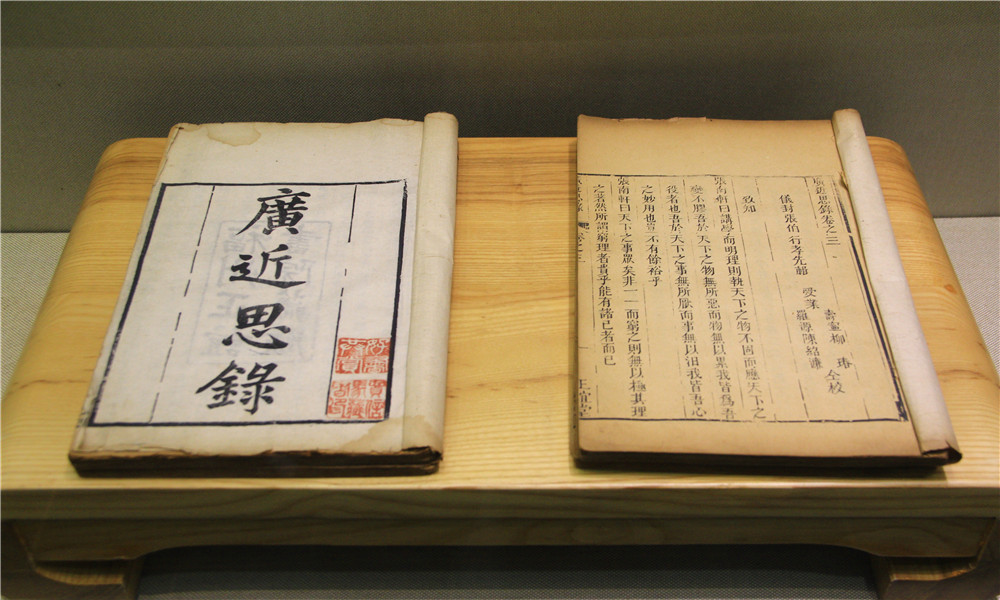 廣近思錄
廣近思錄卷之三
儀封張伯行孝先部
受業
壽寧柳
羅源陳紹濂
仝校
致知
張南軒曰講學而明理則執天下之物不固而應天下之
變不膠吾於天下之物無所惡而物無以累我皆為吾
役者也吾於天下之事無所厭而事無以汩我皆吾心
之妙用也豈不有餘裕乎
張南軒曰天下之事眾矣非一一而窮之則無以極其理
之著然所謂窮理者貴乎能有諸已者而已
正誼堂